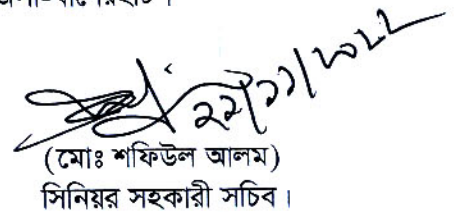 ২২/১১/২০২২
(মোঃ শফিউল আলম)
সিনিয়র সহকারী সচিব।